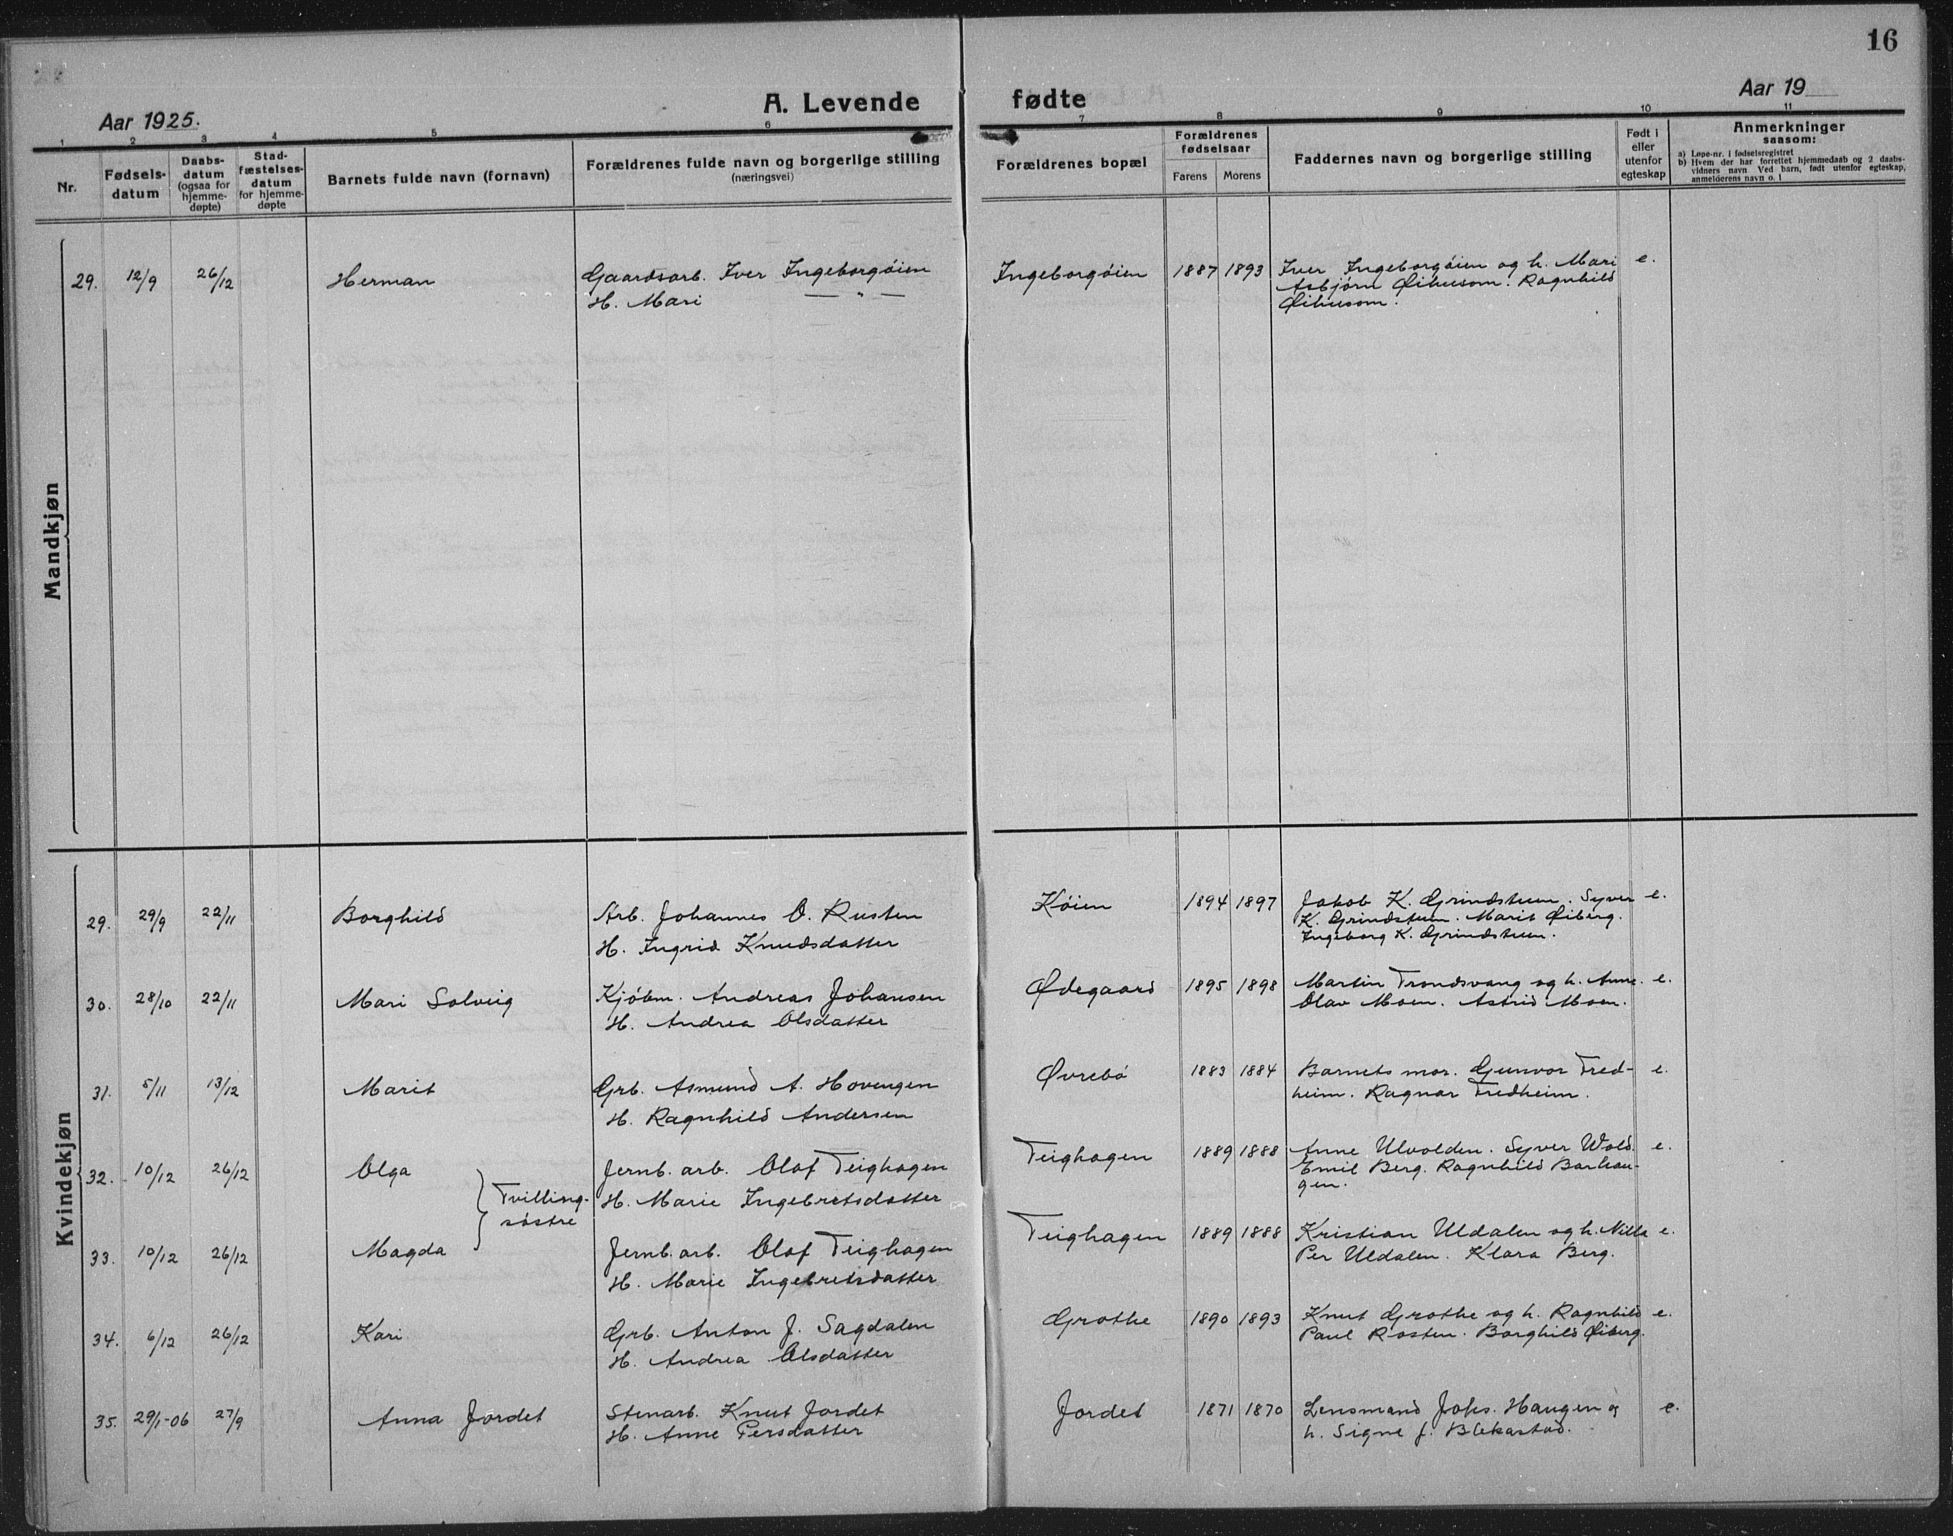 16
Aar 1925.
A. Levende fødte
Aar 19
1 2 3 4 5 6 7 8 9 10 11
Nr.
Fødsels-
datum
Daabs-
datum
(ogsaa for
hjemme-
døpte)
Stad-
fæstelses-
datum
for hjemme-
døpte
Barnets fulde navn (fornavn)
Forældrenes fulde navn og borgerlige stilling
(næringsvei)
Forældrenes bopæl
Forældrenes
fødselsaar
Farens Morens
Faddernes navn og borgerlige stilling
Født i
eller
utenfor
egteskap
Anmerkninger
saasom:
a) Løpe-nr. i fødselsregistret
b) Hvem der har forrettet hjemmedaab og 2 daabs-
vidners navn Ved barn, født utenfor egteskap,
anmelderens navn o. l
Mandkjøn
29. 12/9 26/12 Herman Gaardsarb. Iver Ingeborgöien Ingeborgöien 1887 1893 Iver Ingeborgöien og h. Mari e.
H. Mari — " — Asbjörn Öihusom. Ragnhild
Öihusom.
Kvindekjøn
29. 29/9 22/11 Borghild Arb. Johannes O. Rusten Köien 1894 1897 Jakob K. Grindstuen. Syver e.
H. Ingrid Knudsdatter K. Grindstuen. Marit Öiberg.
Ingeborg K. Grindstuen.
30. 28/10 22/11 Mari Solveig Kjöbm. Andreas Johansen Ödegaard 1895 1898 Martin Trondsvang og h. Anne. e.
H. Andrea Olsdatter Olav Moen. Astrid Moen.
31. 5/11 13/12 Marit Grb. Asmund A. Hovengen Övrebö 1883 1884 Barnets mor. Gunvor Fred- e.
H. Ragnhild Andersen heim. Ragnar Fredheim.
32. 10/12 26/12 Olga Jernb. arb. Olaf Teighagen Teighagen 1889 1888 Anne Ulvolden. Syver Wold. e.
Tvilling- H. Marie Ingebretsdatter Emil Berg. Ragnhild Barhau-
söstre gen.
33. 10/12 26/12 Magda Jernb. arb. Olaf Teighagen Teighagen 1889 1888 Kristian Uldalen og h. Nilla e.
H. Marie Ingebretsdatter Per Uldalen. Klara Berg.
34. 6/12 26/12 Kari Grb. Anton J. Sagdalen Grothe 1890 1893 Knut Grothe og h. Ragnhild e.
H. Andrea Olsdatter Paul Rosten. Borghild Öiberg.
35. 29/1-06 27/9 Anna Jordet Stenarb. Knut Jordet Jordet 1871 1870 Lensmand Johs. Haugen og e.
H. Anne Persdatter h. Signe f. Blekastad.